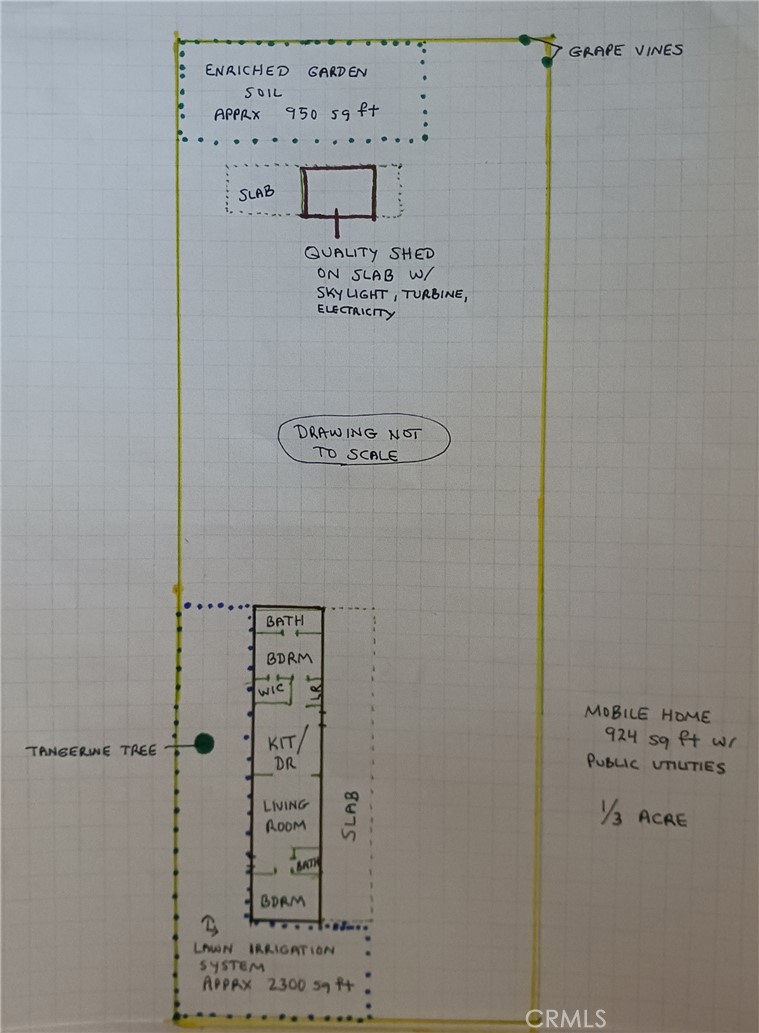 GRAPE VINES
ENRICHED GARDEN
SOIL
APPRX 950 sq ft
SLAB
QUALITY SHED
ON SLAB W/
SKYLIGHT, TURBINE,
ELECTRICITY
DRAWING NOT
TO SCALE
BATH
BDRM
WIC
LR
KIT/
DR
TANGERINE TREE
LIVING
ROOM
BATH
BDRM
SLAB
MOBILE HOME
924 sq ft w/
PUBLIC UTILITIES
1/3 ACRE
LAWN IRRIGATION
SYSTEM
APPRX 2300 sq ft
CRMLS